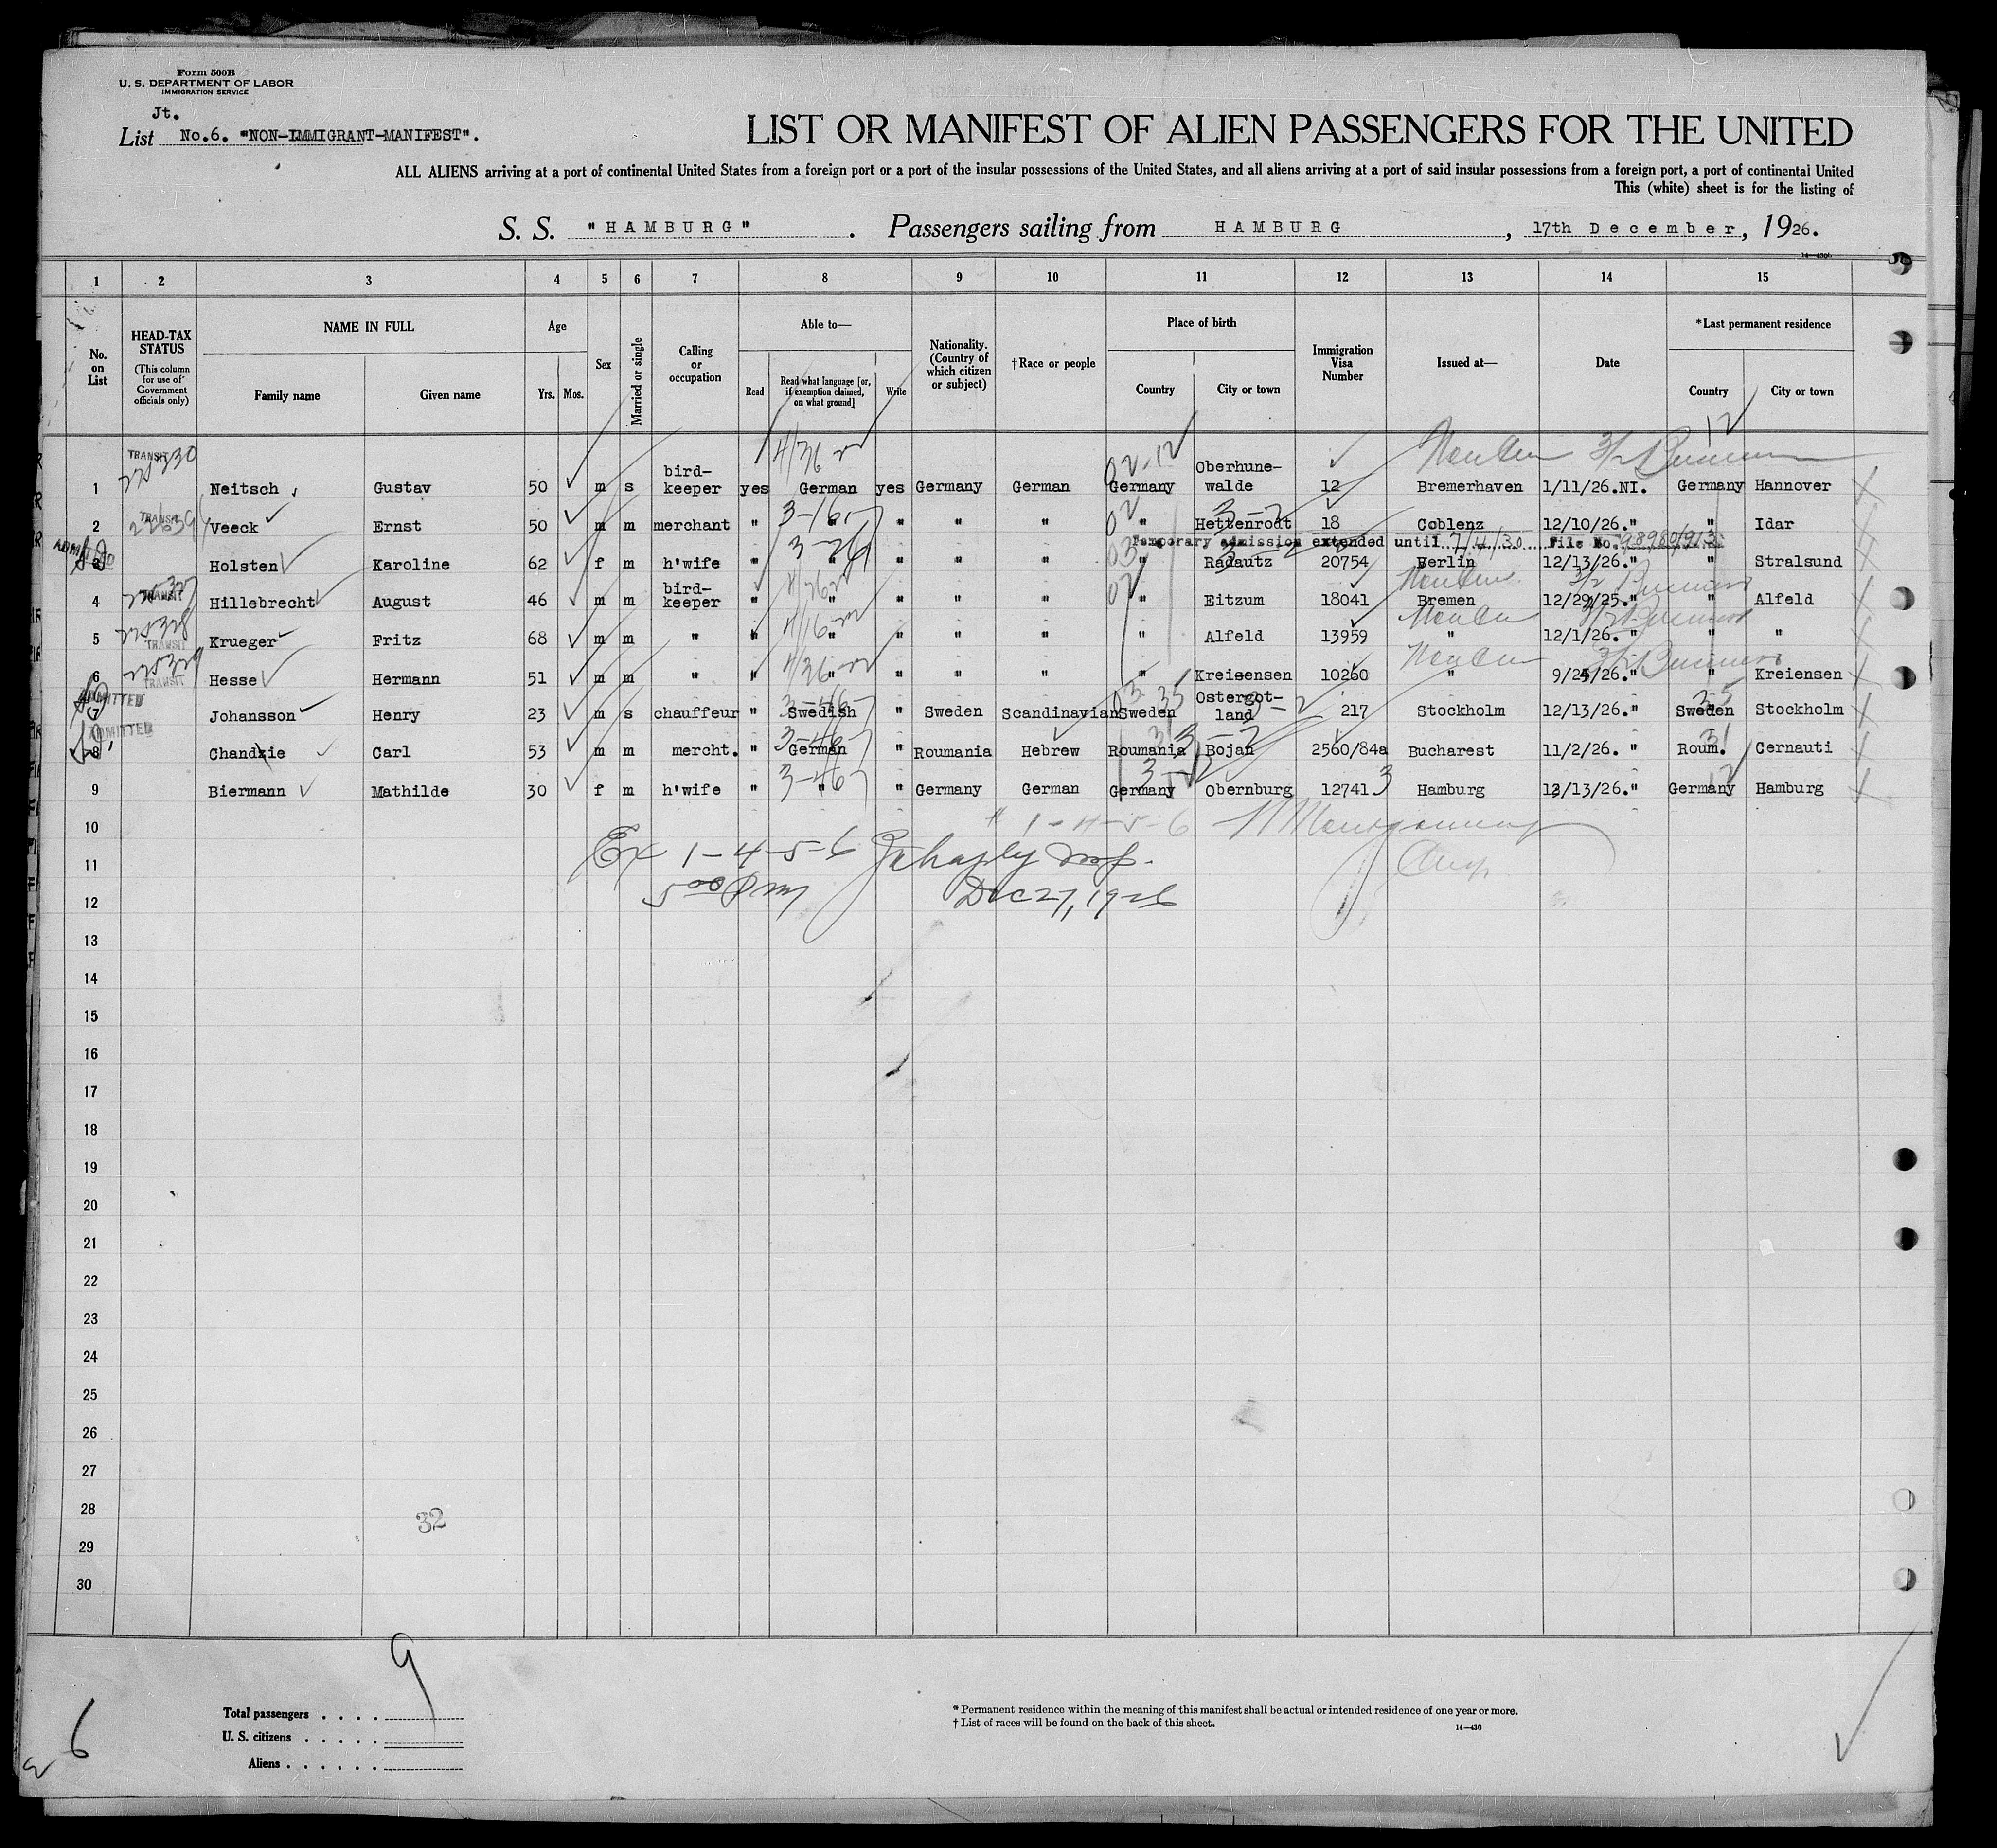 Form 500B
U. S. DEPARTMENT OF LABOR
IMMIGRATION SERVICE
Jt.
List No.6. "NON-IMMIGRANT-MANIFEST".
LIST OR MANIFEST OF ALIEN PASSENGERS FOR THE UNITED
ALL ALIENS arriving at a port of continental United States from a foreign port or a port of the insular possessions of the United States, and all aliens arriving at a port of said insular possessions from a foreign port, a port of continental United
This (white) sheet is for the listing of
S. S. "HAMBURG" . Passengers sailing from HAMBURG , 17th December, 1926.
14—430
1 2 3 4 5 6 7 8 9 10 11 12 13 14 15
No. on List
HEAD-TAX STATUS
(This column for use of Government officials only)
NAME IN FULL
Family name Given name
Age
Yrs. Mos.
Sex
Married or single
Calling or occupation
Able to—
Read Read what language [or, if exemption claimed, on what ground] Write
Nationality. (Country of which citizen or subject)
†Race or people
Place of birth
Country City or town
Immigration Visa Number
Issued at—
Date
*Last permanent residence
Country City or town
12
TRANSIT 4/26 02-12
1 Neitsch Gustav 50 m s bird-keeper yes German yes Germany German Germany Oberhune-walde 12 Bremerhaven 1/11/26.NI. Germany Hannover
TRANSIT
2 Veeck Ernst 50 m m merchant " " " " " " Hettenrodt 18 Coblenz 12/10/26." " Idar
Temporary admission extended until 7/4/30 File No.
ADMITTED
3 Holsten Karoline 62 f m h'wife " " " " " " Radautz 20754 Berlin 12/13/26." " Stralsund
TRANSIT
4 Hillebrecht August 46 m m bird-keeper " " " " " " Eitzum 18041 Bremen 12/29/25." " Alfeld
5 Krueger Fritz 68 m m " " " " " " " Alfeld 13959 " 12/1/26. " " "
TRANSIT
6 Hesse Hermann 51 m m " " " " " " " Kreiensen 10260 " 9/25/26." " Kreiensen
TRANSIT
ADMITTED
7 Johansson Henry 23 m s chauffeur " Swedish " Sweden Scandinavian Sweden Ostergot-land 217 Stockholm 12/13/26." Sweden Stockholm
ADMITTED
8 Chandzie Carl 53 m m mercht. " German " Roumania Hebrew Roumania Bojan 2560/84a Bucharest 11/2/26. " Roum. Cernauti
9 Biermann Mathilde 30 f m h'wife " " " Germany German Germany Obernburg 12741 3 Hamburg 12/13/26." Germany Hamburg
10 1-4-5-6
11 Ex 1-4-5-6
12 5 00 PM Dec 27, 1926
13
14
15
16
17
18
19
20
21
22
23
24
25
26
27
28
32
29
30
9
Total passengers . . . .
U. S. citizens . . . . .
Aliens . . . . . .
6
* Permanent residence within the meaning of this manifest shall be actual or intended residence of one year or more.
† List of races will be found on the back of this sheet.
14—430